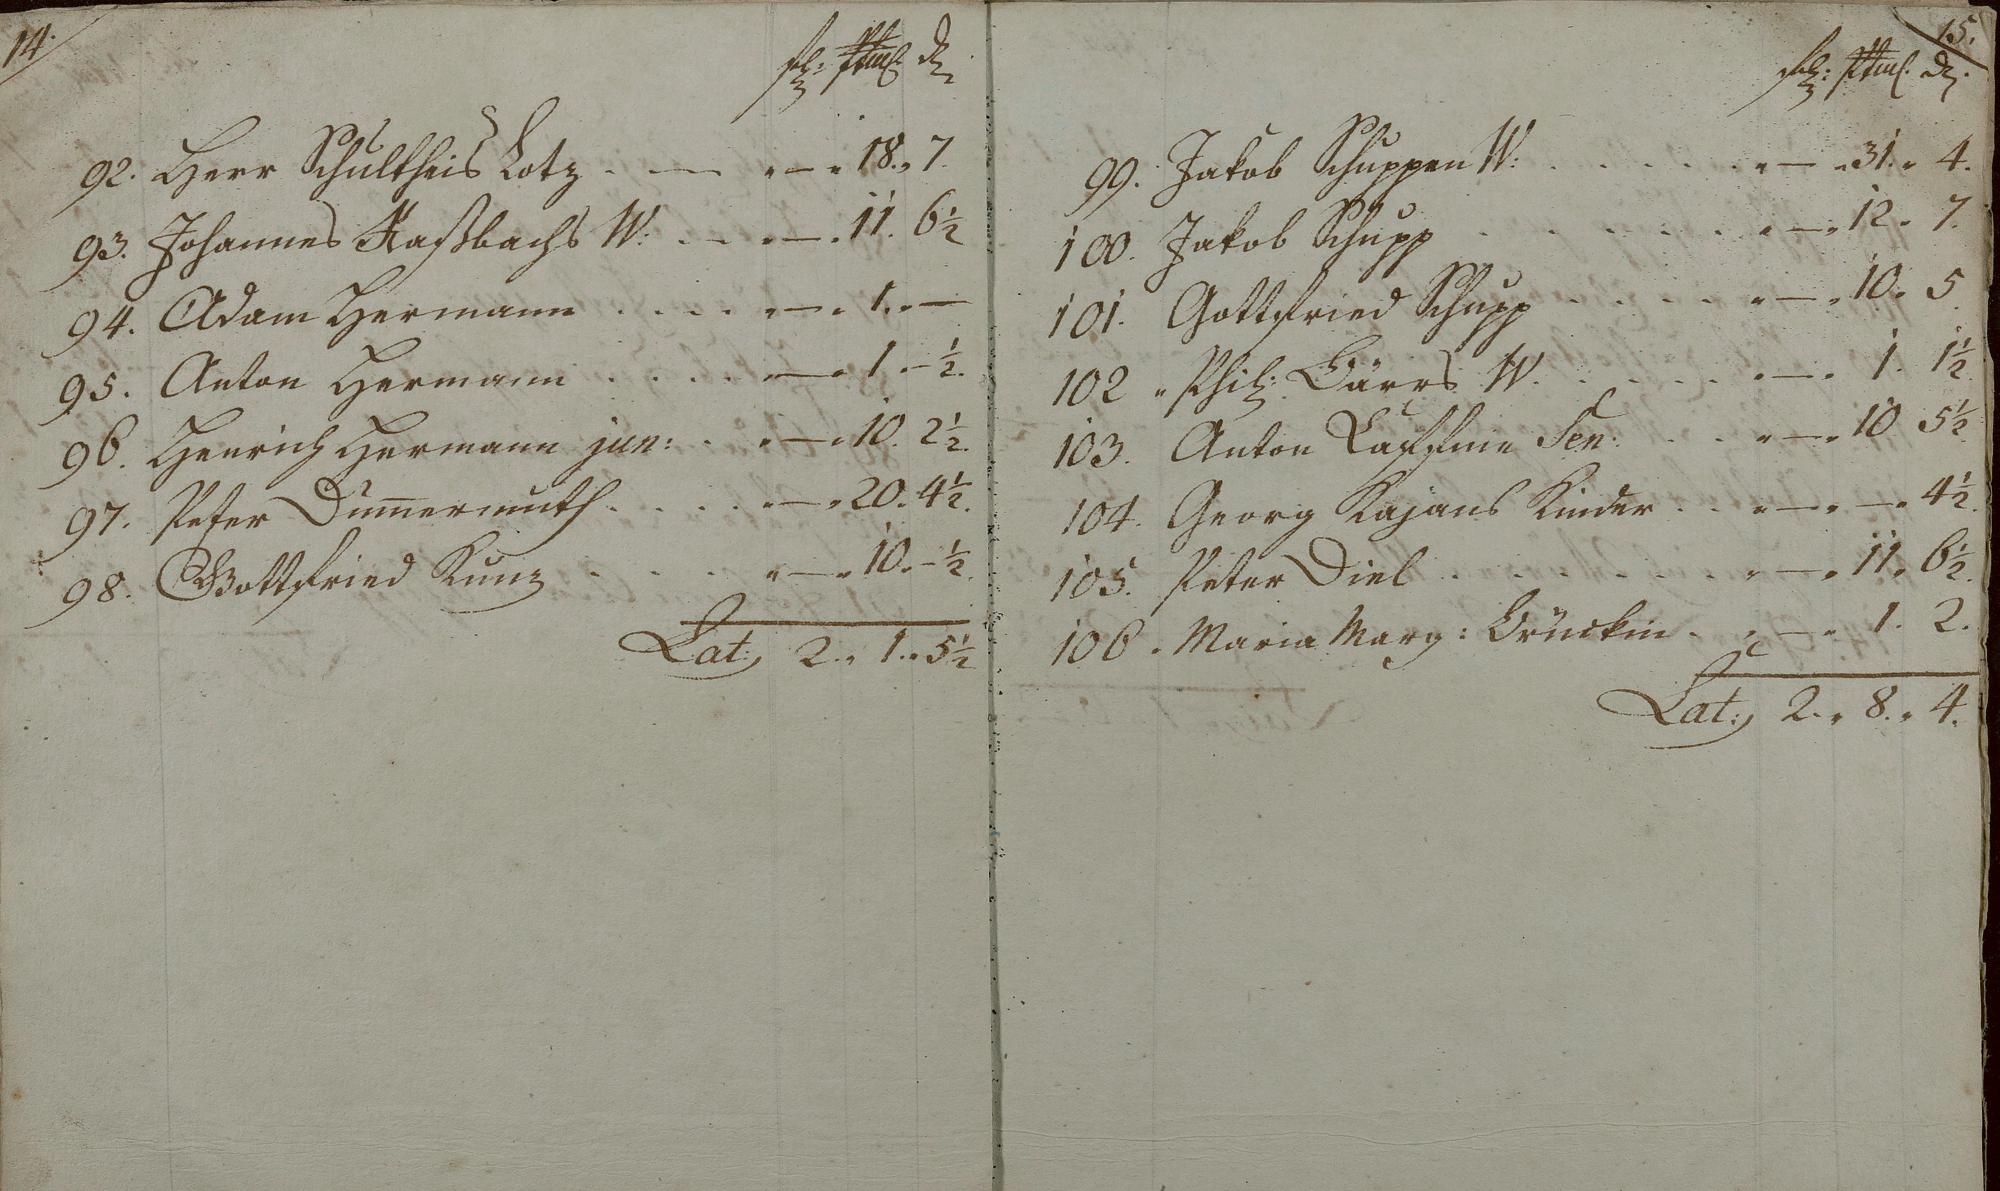 14.
92. Herr Schultheis Lotz . — „ — „ 18. „ 7.
93. Johannes Kaßbachs W: . — „ — . 11. 6½
94. Adam Hermann . . . . „ — . 1. „ —
95. Anton Hermann . . . . „ — „ 1 . – ½.
96. Henrich Hermann jun: . . „ — „ 10. 2½.
97. Peter Dum̄ermuth . . . . „ — „ 20. 4½.
98. Gottfried Kunz . . . . „ — „ 10. – ½.
Lat: 2. „ 1. „ 5½
15.
99. Jakob Schuppen W: . . . . . „ — „ 31. „ 4.
100. Jakob Schupp . . . . . . „ — „ 12 „ 7.
101. Gottfried Schupp . . . . . „ — „ 10. „ 5
102 „ Phil: Bärrs W. . . . . . „ — „ 1. 1½
103. Anton Sen: . . . „ — „ 10 5½
104. Georg Kajans Kinder . . „ — „ — „ 4½.
105. Peter Diel . . . . . . . „ — „ 11. „ 6½.
106 . Maria Marg: Brückin . „ — „ 1. 2.
Lat: 2. „ 8. „ 4.